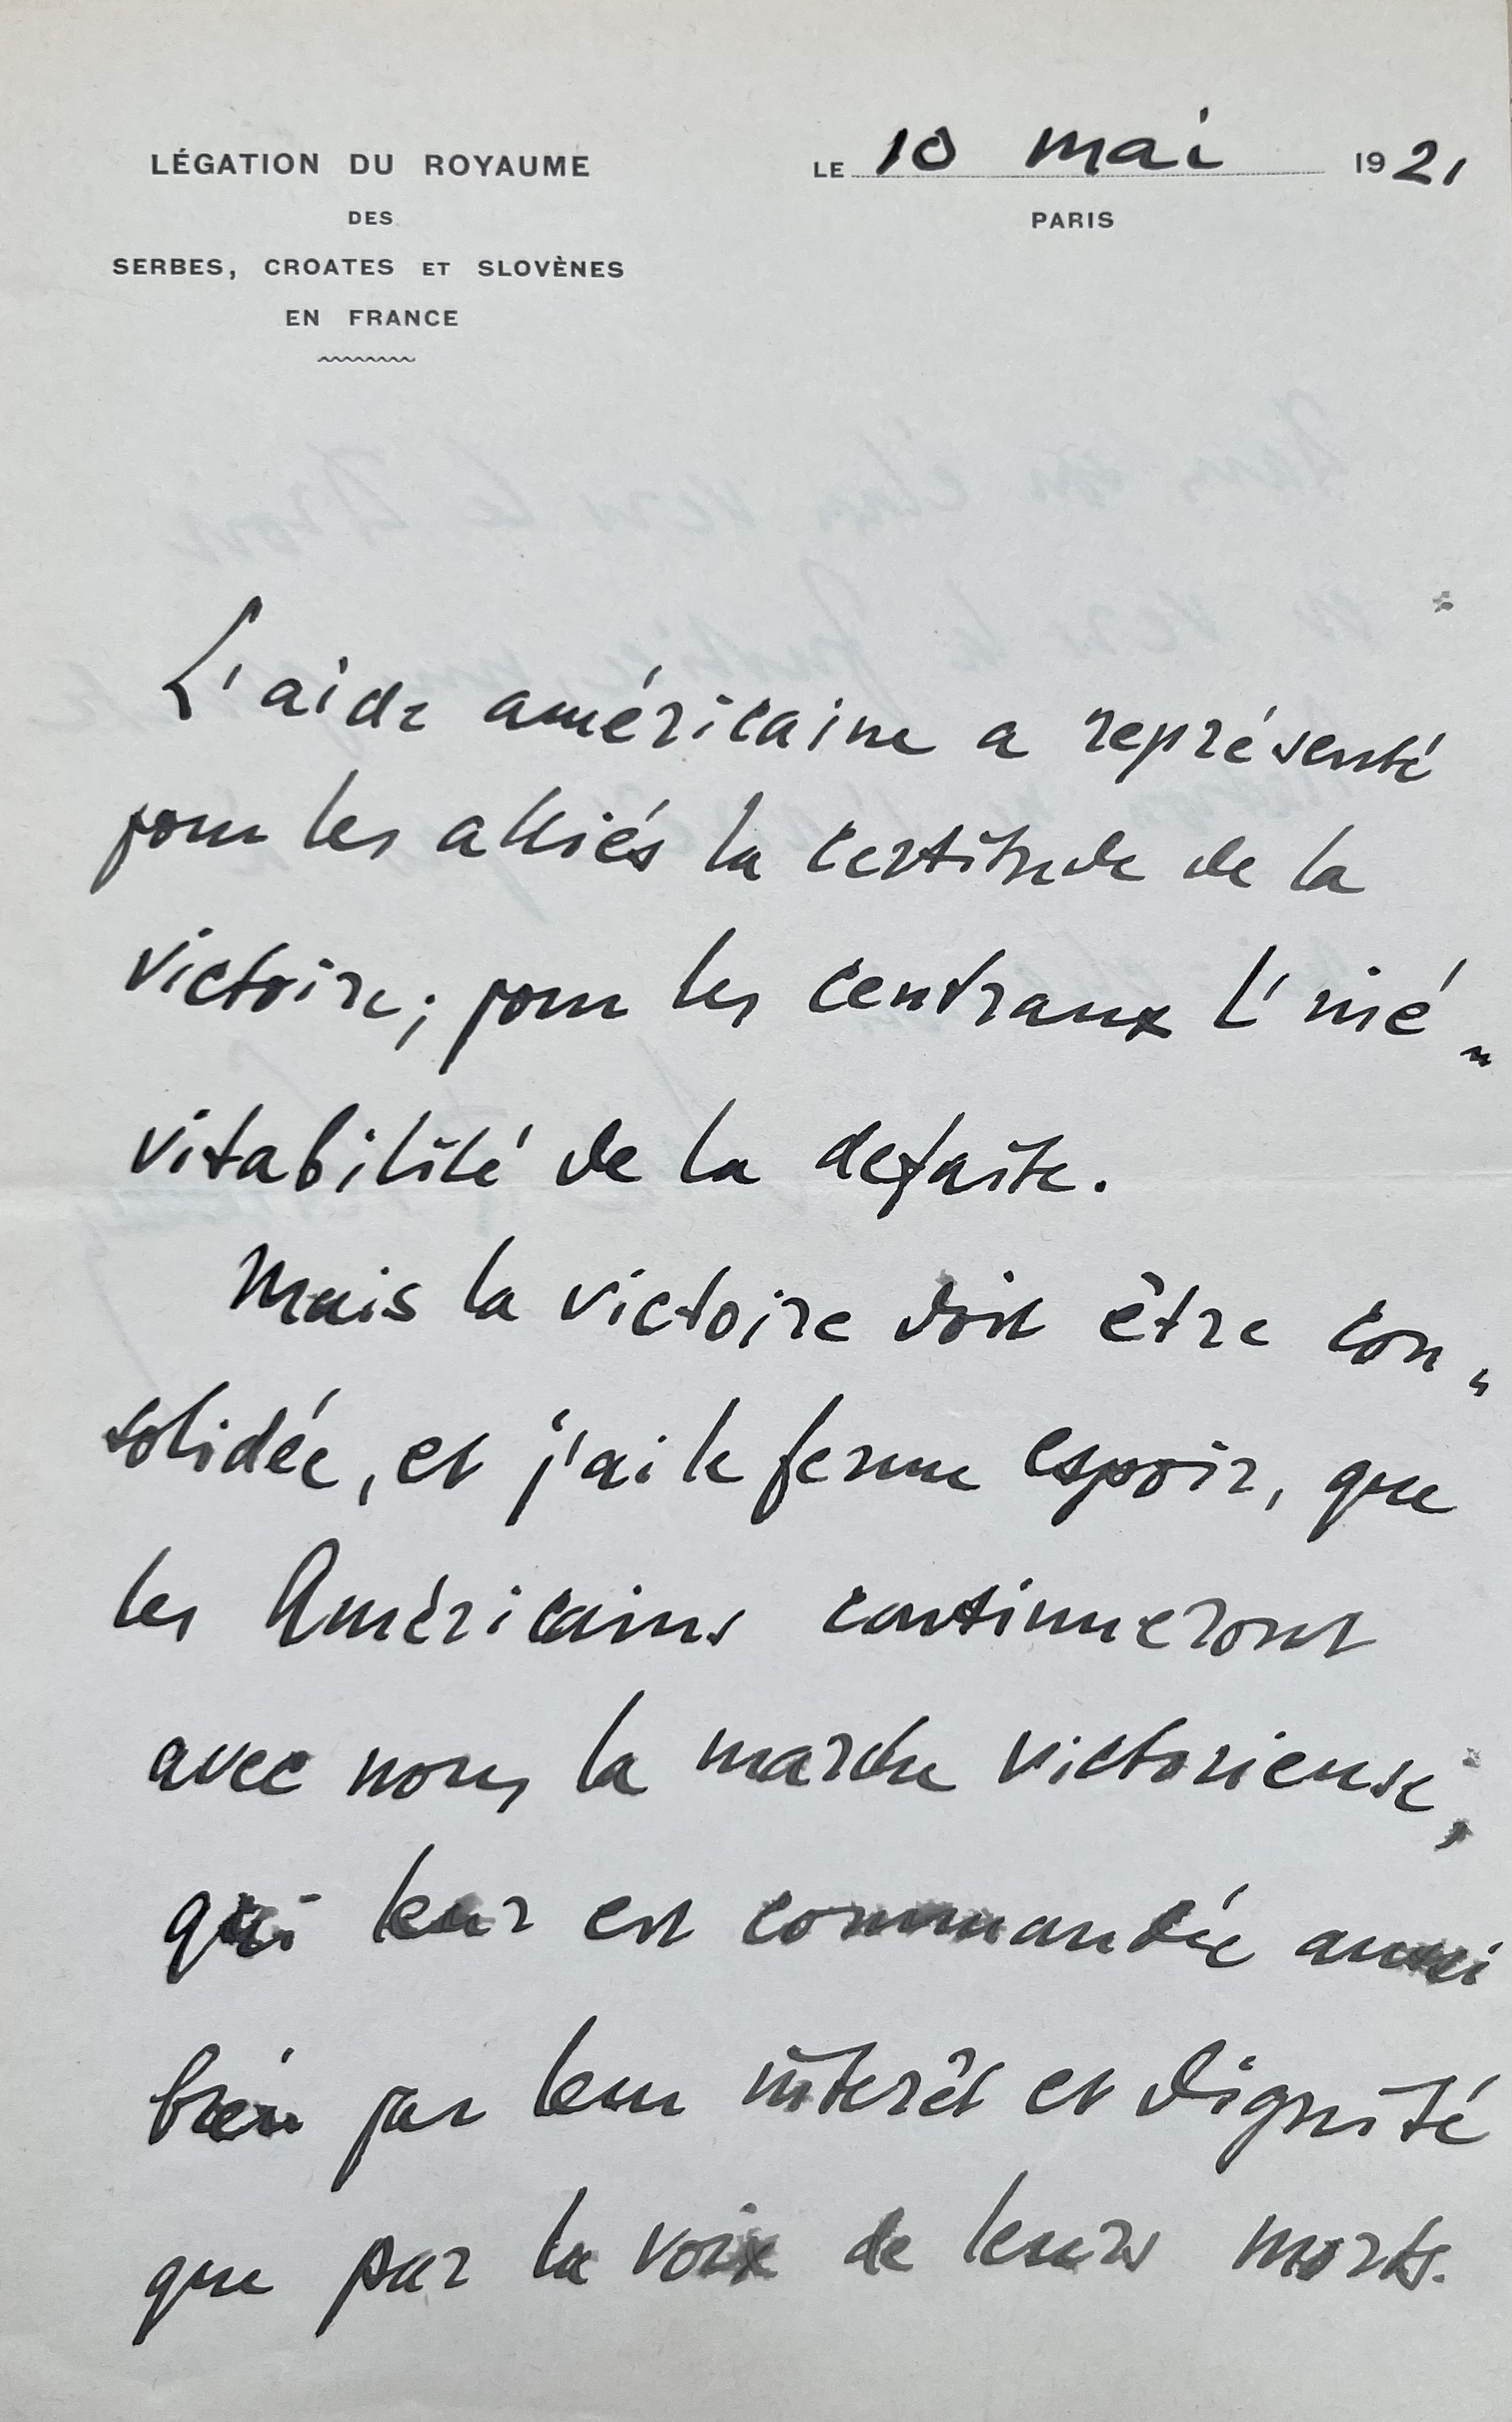 LÉGATION DU ROYAUME
DES
SERBES, CROATES ET SLOVÈNES
EN FRANCE
LE 10 mai 1921
PARIS
L'aide américaine a représenté
pour les alliés la certitude de la
victoire; pour les centraux l'iné„
vitabilité de la defaite.
Mais la victoire doit être con„
solidée, et j'ai le ferme espoir, que
les Américains continueront
avec nous la marche victorieuse,
qui leur est commandée aussi
bien par leur intérêt et dignité
que par la voix de leurs morts.